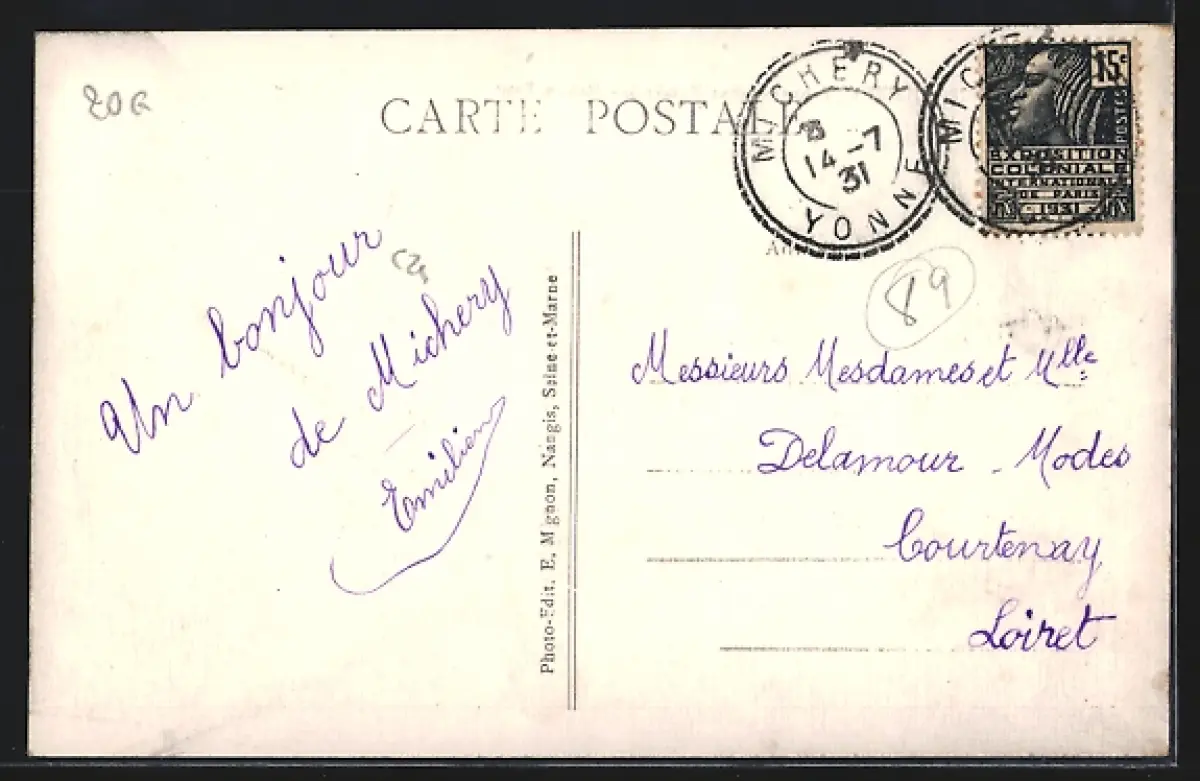 20G
CARTE POSTALE
MICHERY
14-7
31
YONNE
MIC
15c
POSTES
EXPOSITION
COLONIALE
INTERNATIONALE
DE PARIS
1931
89
Un bonjour
de Michery
Emilien
Photo-Edit. E. Mignon, Nangis, Seine-et-Marne
Messieurs Mesdames et Mlle
Delamour - Modes
Courtenay
Loiret